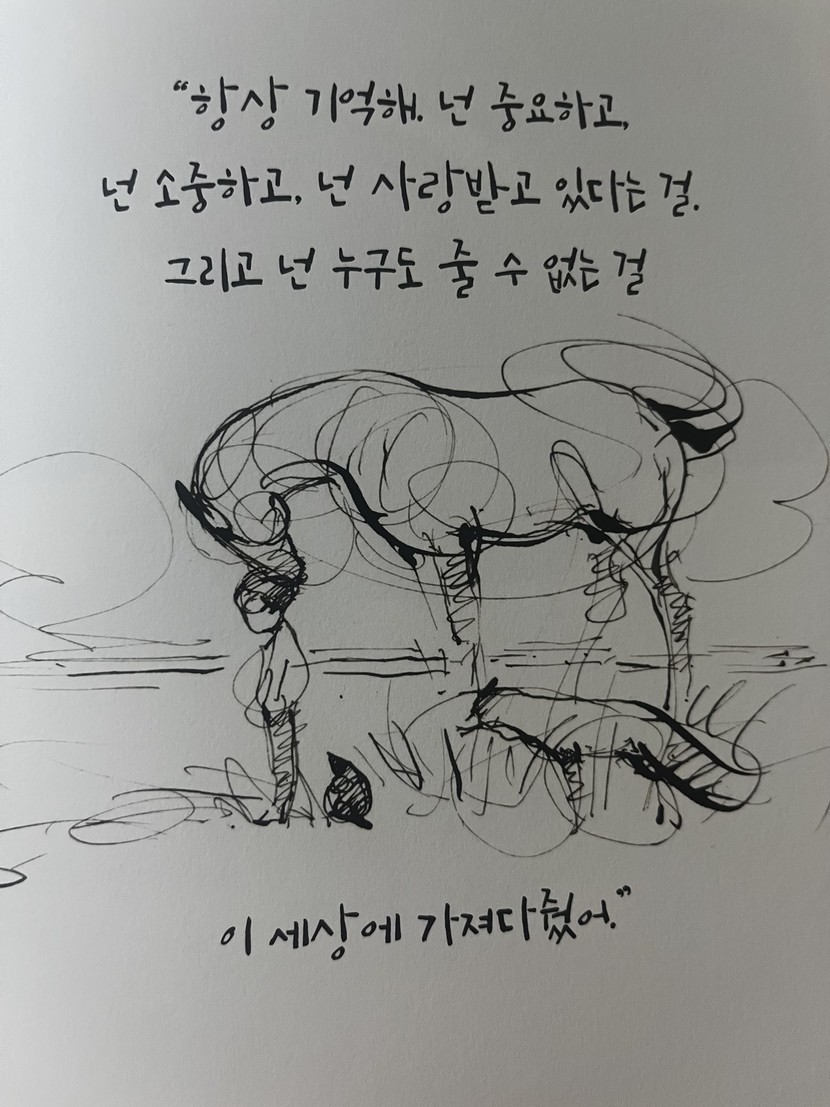 “항상 기억해. 넌 중요하고,
넌 소중하고, 넌 사랑받고 있다는 걸.
그리고 넌 누구도 줄 수 없는 걸
이 세상에 가져다줬어.”